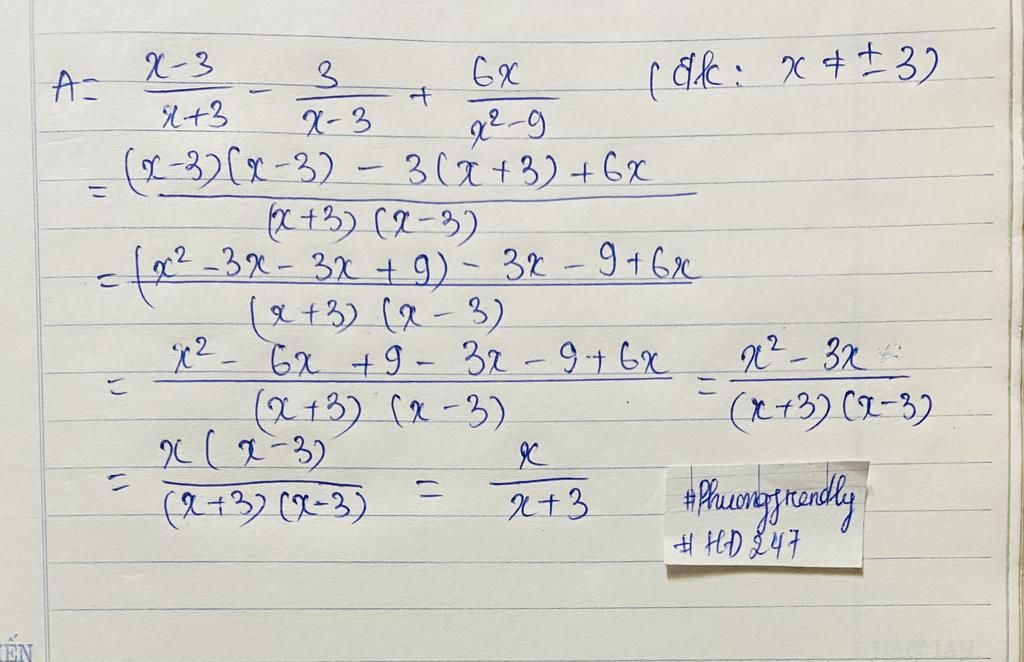 A = \frac{x-3}{x+3} - \frac{3}{x-3} + \frac{6x}{x^2-9} (đk: x ≠ ± 3)
= \frac{(x-3)(x-3) - 3(x+3) + 6x}{(x+3)(x-3)}
= \frac{(x^2 - 3x - 3x + 9) - 3x - 9 + 6x}{(x+3)(x-3)}
= \frac{x^2 - 6x + 9 - 3x - 9 + 6x}{(x+3)(x-3)} = \frac{x^2 - 3x}{(x+3)(x-3)}
= \frac{x(x-3)}{(x+3)(x-3)} = \frac{x}{x+3}
#Phuongfrendly
#HD247
ẾN